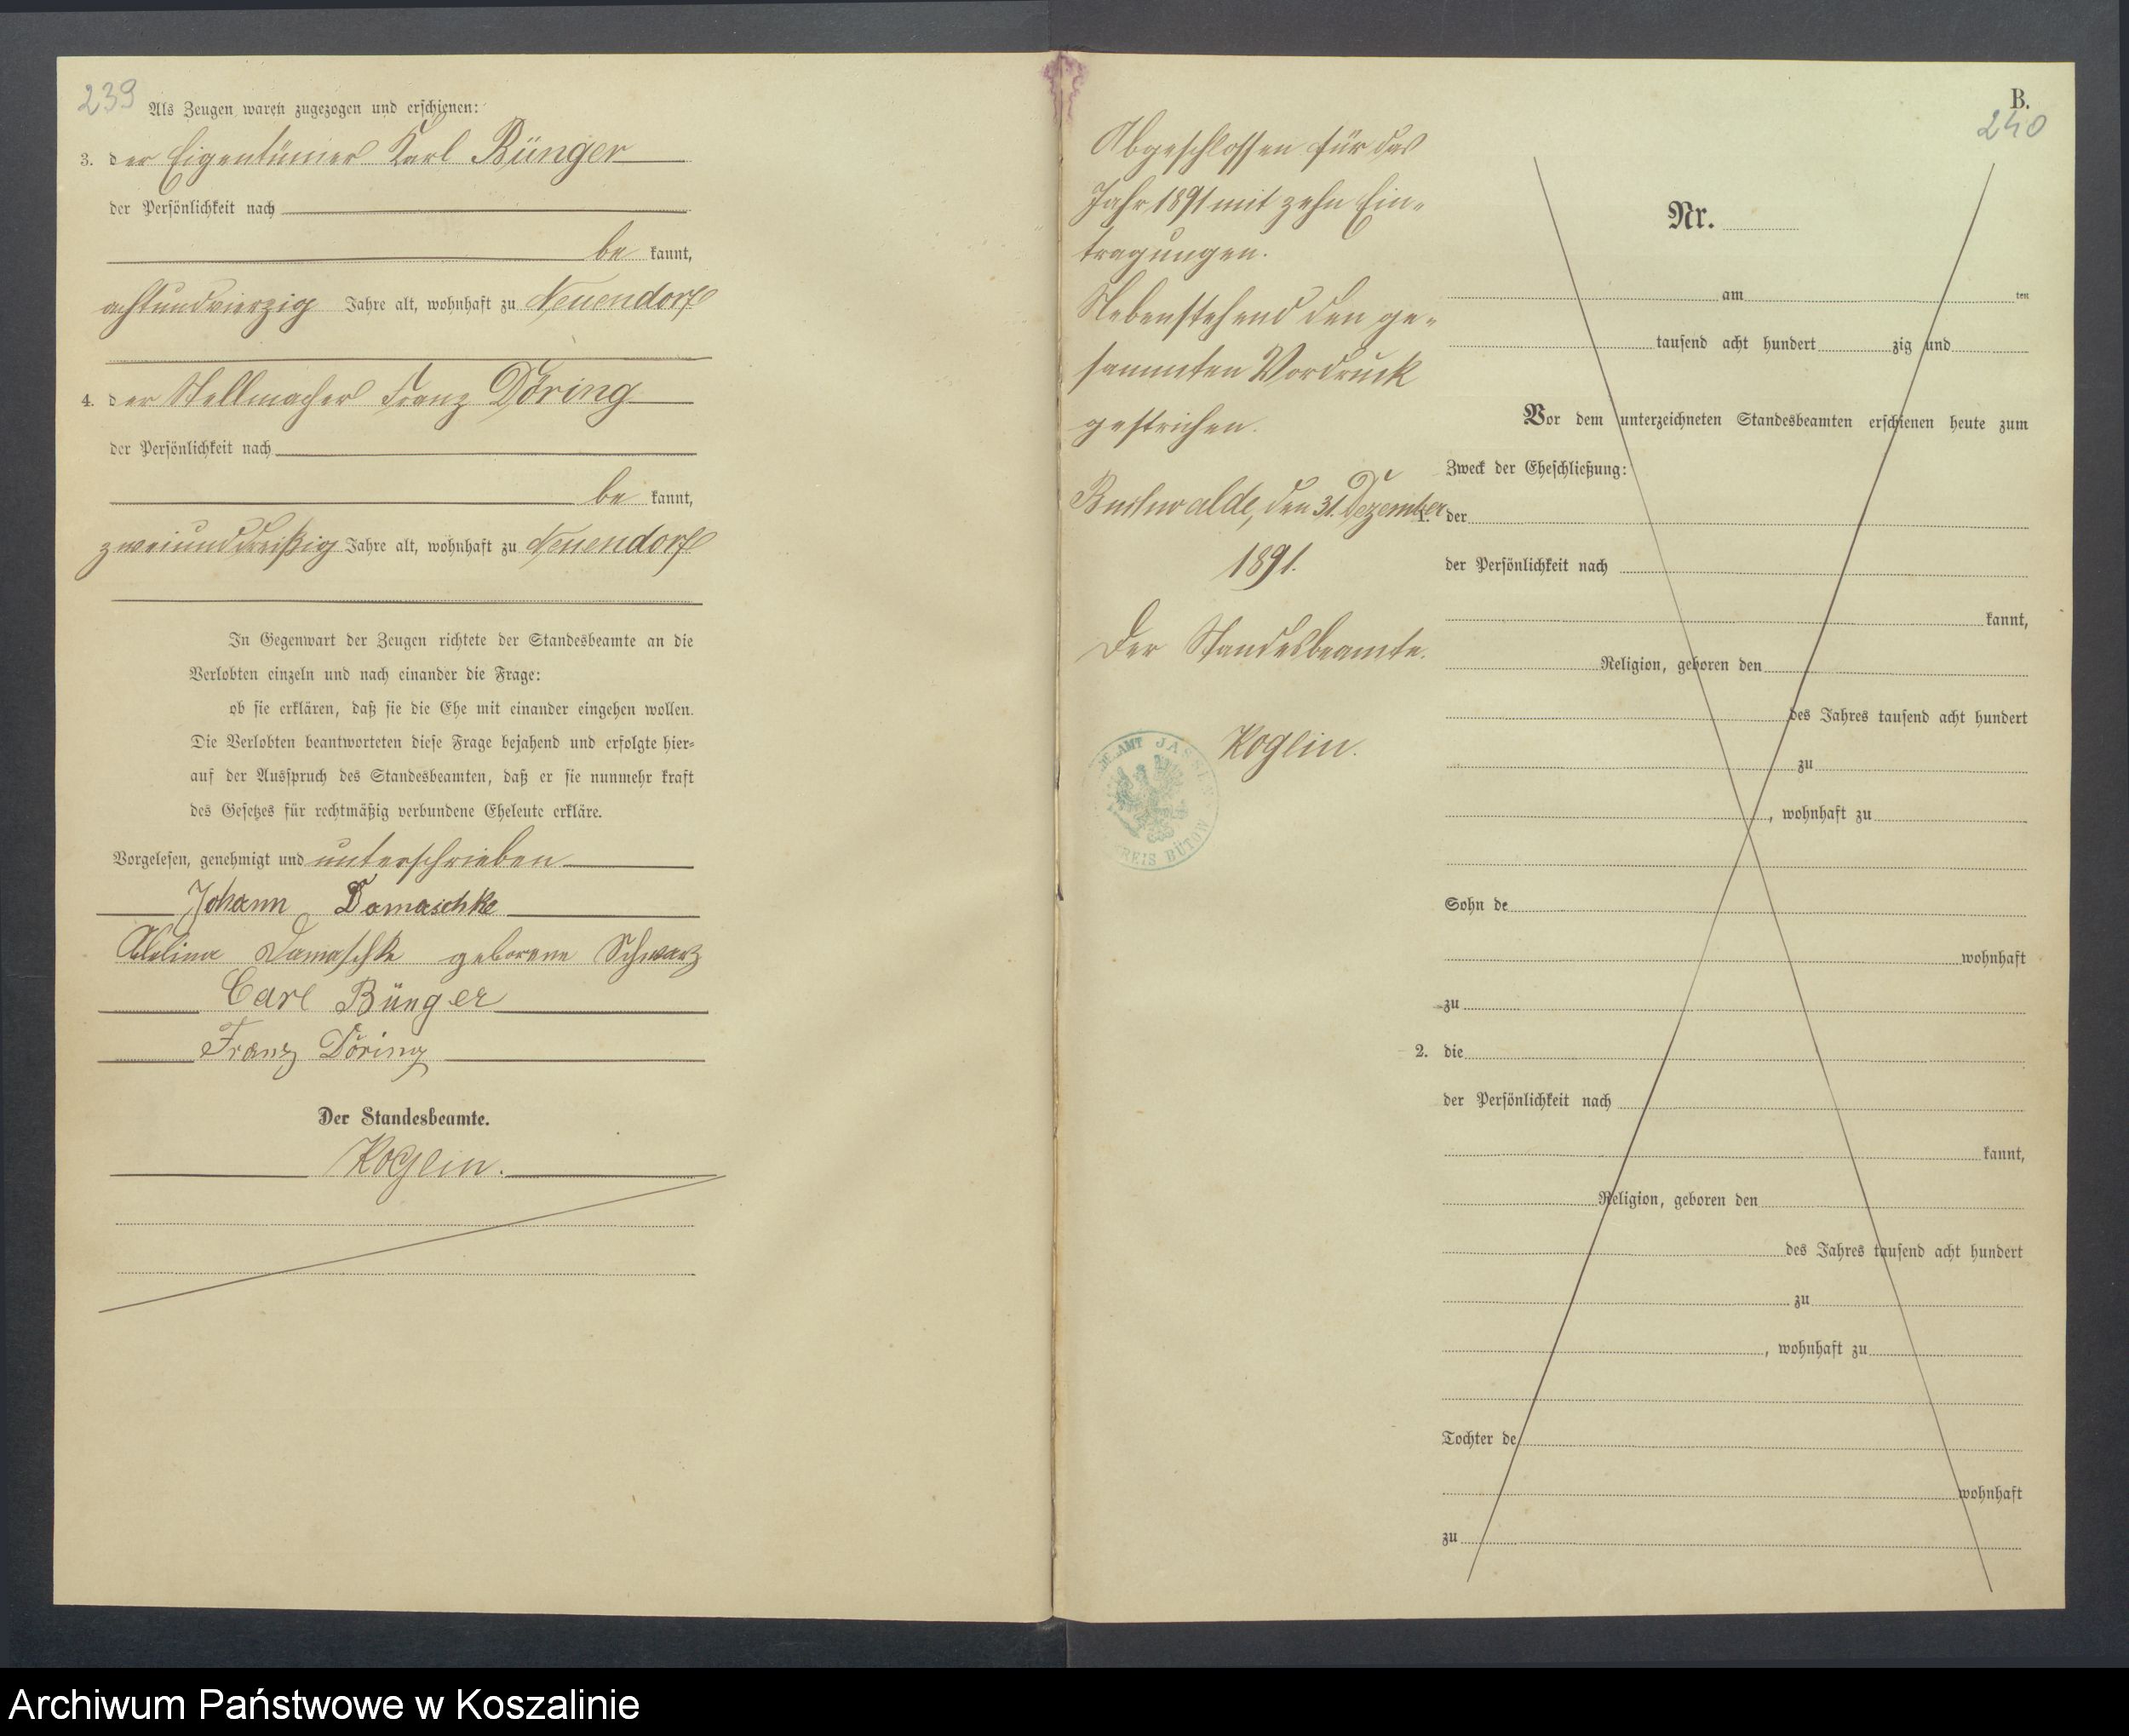 239
Als Zeugen waren zugezogen und erschienen:
3. der Eigentümer Karl Bünger
der Persönlichkeit nach
be kannt,
achtundvierzig Jahre alt, wohnhaft zu Neuendorf
4. der Stellmacher Franz Döring
der Persönlichkeit nach
be kannt,
zweiunddreißig Jahre alt, wohnhaft zu Neuendorf
In Gegenwart der Zeugen richtete der Standesbeamte an die
Verlobten einzeln und nach einander die Frage:
ob sie erklären, daß sie die Ehe mit einander eingehen wollen.
Die Verlobten beantworteten diese Frage bejahend und erfolgte hier-
auf der Ausspruch des Standesbeamten, daß er sie nunmehr kraft
des Gesetzes für rechtmäßig verbundene Eheleute erkläre.
Vorgelesen, genehmigt und unterschrieben
Johann Damaschke
Damaschke geborene Schwarz
Carl Bünger
Franz Döring
Der Standesbeamte.
Koglin.
Abgeschlossen für das
Jahr 1891 mit zehn Ein-
tragungen.
Nebenstehend den ge-
sammten Vordruck
gestrichen.
den 31. Dezember
1891.
Der Standesbeamte.
Koglin.
KREIS BÜTOW
B.
240
Nr.
am ten
tausend acht hundert zig und
Vor dem unterzeichneten Standesbeamten erschienen heute zum
Zweck der Eheschließung:
1. der
der Persönlichkeit nach
kannt,
Religion, geboren den
des Jahres tausend acht hundert
zu
, wohnhaft zu
Sohn de
wohnhaft
zu
2. die
der Persönlichkeit nach
kannt,
Religion, geboren den
des Jahres tausend acht hundert
zu
, wohnhaft zu
Tochter de
wohnhaft
zu
Archiwum Państwowe w Koszalinie